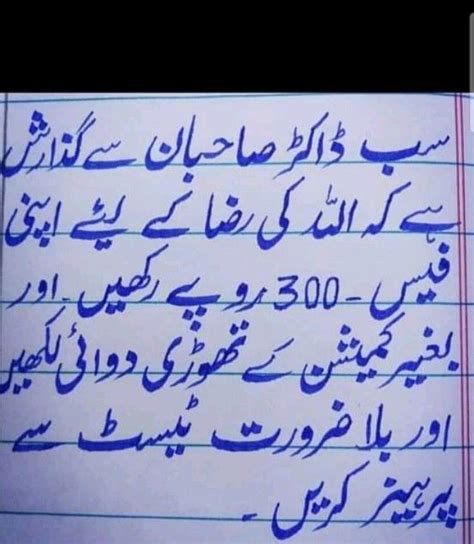 سب ڈاکٹر صاحبان سے گذارش
ہے کہ اللہ کی رضا کے لیئے اپنی
فیس -300 روپے رکھیں۔ اور
بغیر کمیشن کے تھوڑی دوائی لکھیں
اور بلا ضرورت ٹیسٹ سے
پرہیز کریں۔